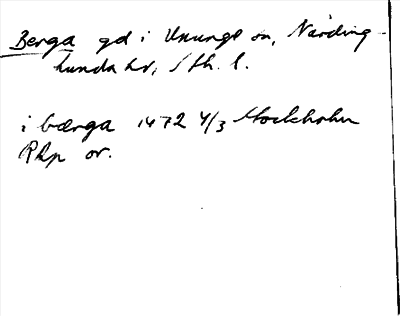 Berga gd i Ununge sn, Närding-
hunda hd, Sth. l.
i bærga 1472 4/3 Stockholm
RAp or.